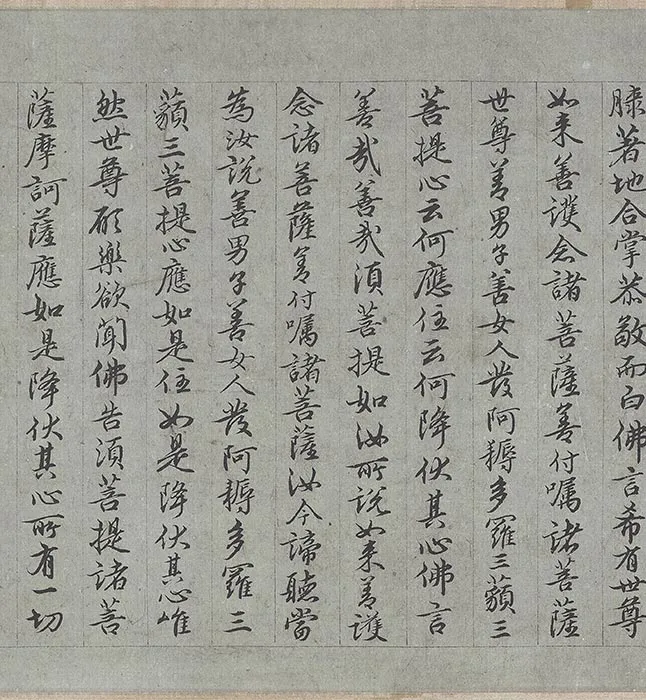 膝著地合掌恭敬而白佛言希有世尊
如来善護念諸菩薩善付嘱諸菩薩
世尊善男子善女人發阿耨多羅三藐三
菩提心云何應住云何降伏其心佛言
善哉善哉湏菩提如汝所說如来善護
念諸菩薩善付嘱諸菩薩汝今諦聽當
為汝說善男子善女人發阿耨多羅三
藐三菩提心應如是住如是降伏其心唯
然世尊願樂欲聞佛告湏菩提諸菩
薩摩訶薩應如是降伏其心所有一切